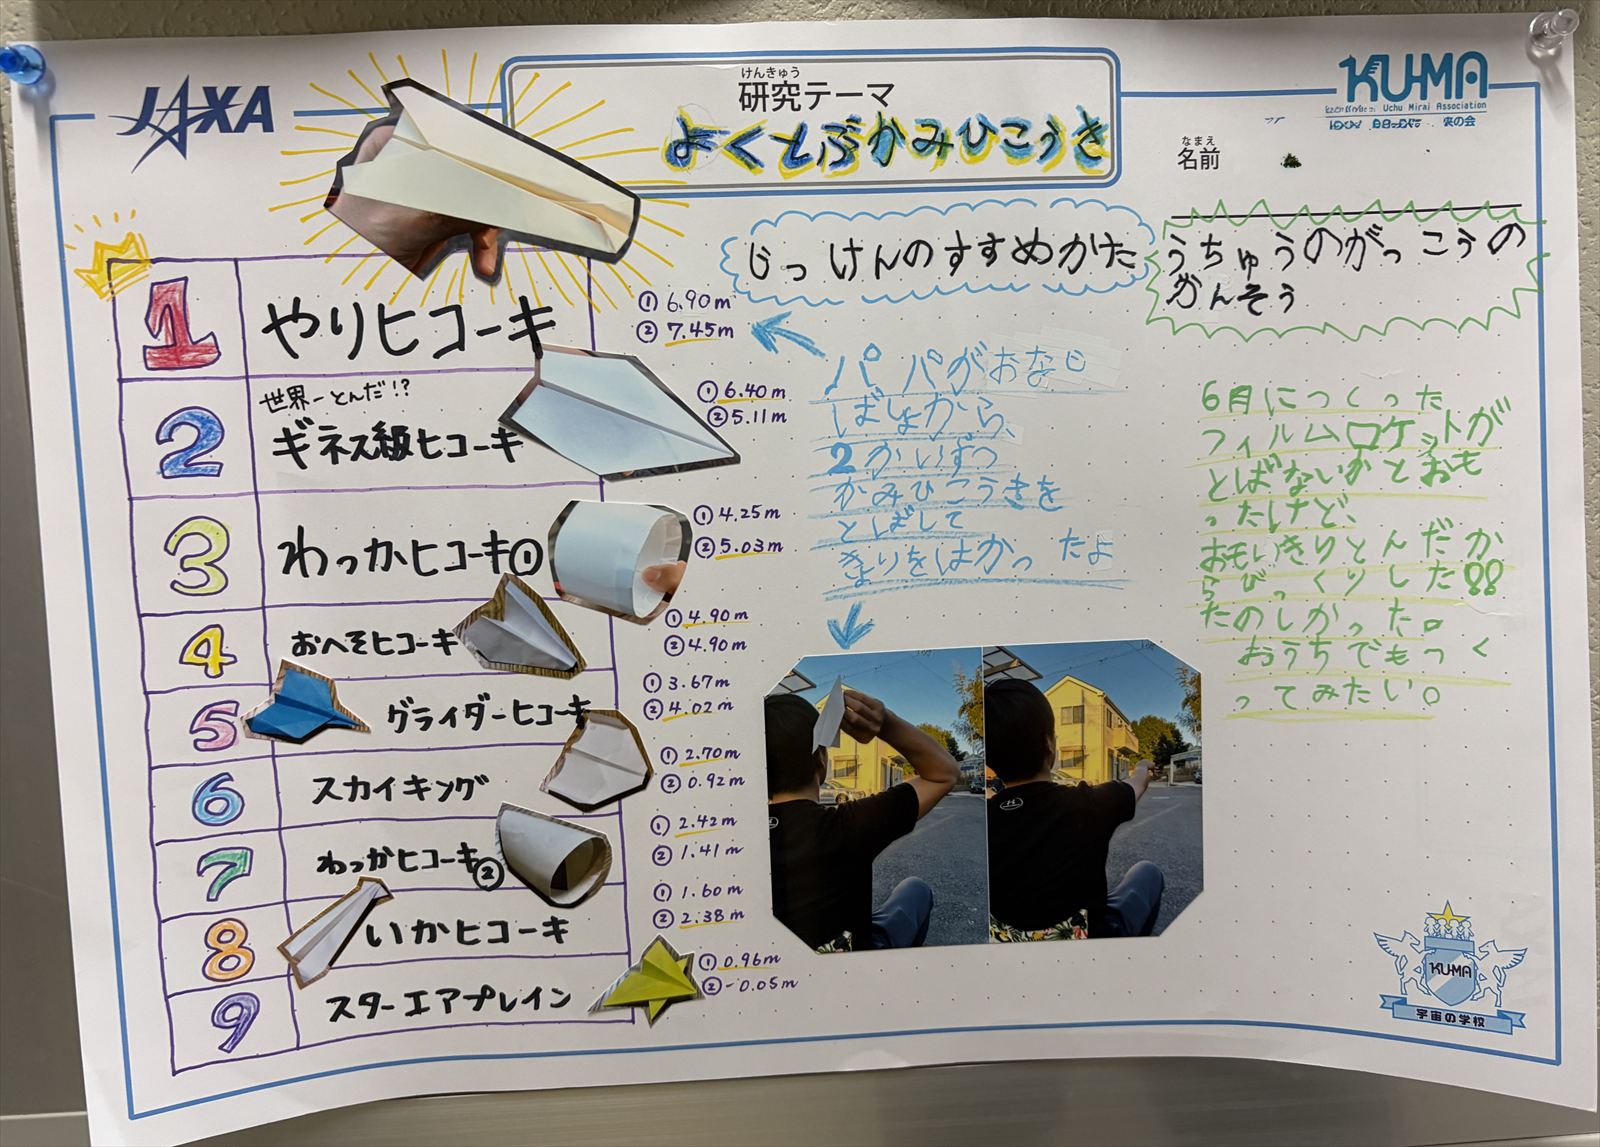 JAXA
けんきゅう
研究テーマ
よくとぶかみひこうき
KU-MA
Uchu Mirai Association
なまえ
名前
1
やりヒコーキ
① 6.90m
② 7.45m
2
世界一とんだ!?
ギネス級ヒコーキ
① 6.40m
② 5.11m
3
わっかヒコーキ①
① 4.25m
② 5.03m
4
おへそヒコーキ
① 4.90m
② 4.90m
5
グライダーヒコーキ
① 3.67m
② 4.02m
6
スカイキング
① 2.70m
② 0.92m
7
わっかヒコーキ②
① 2.42m
② 1.41m
8
いかヒコーキ
① 1.60m
② 2.38m
9
スターエアプレイン
① 0.96m
② -0.05m
じっけんのすすめかた
パパがおなじ
ばしょから、
2かいずつ
かみひこうきを
とばして
きょりをはかったよ
うちゅうのがっこうの
かんそう
6月につくった
フィルムロケットが
とばないかとおも
ったけど、
おもいきりとんだか
らびっくりした!!
たのしかった。
おうちでもつく
ってみたい。
KU-MA
宇宙の学校